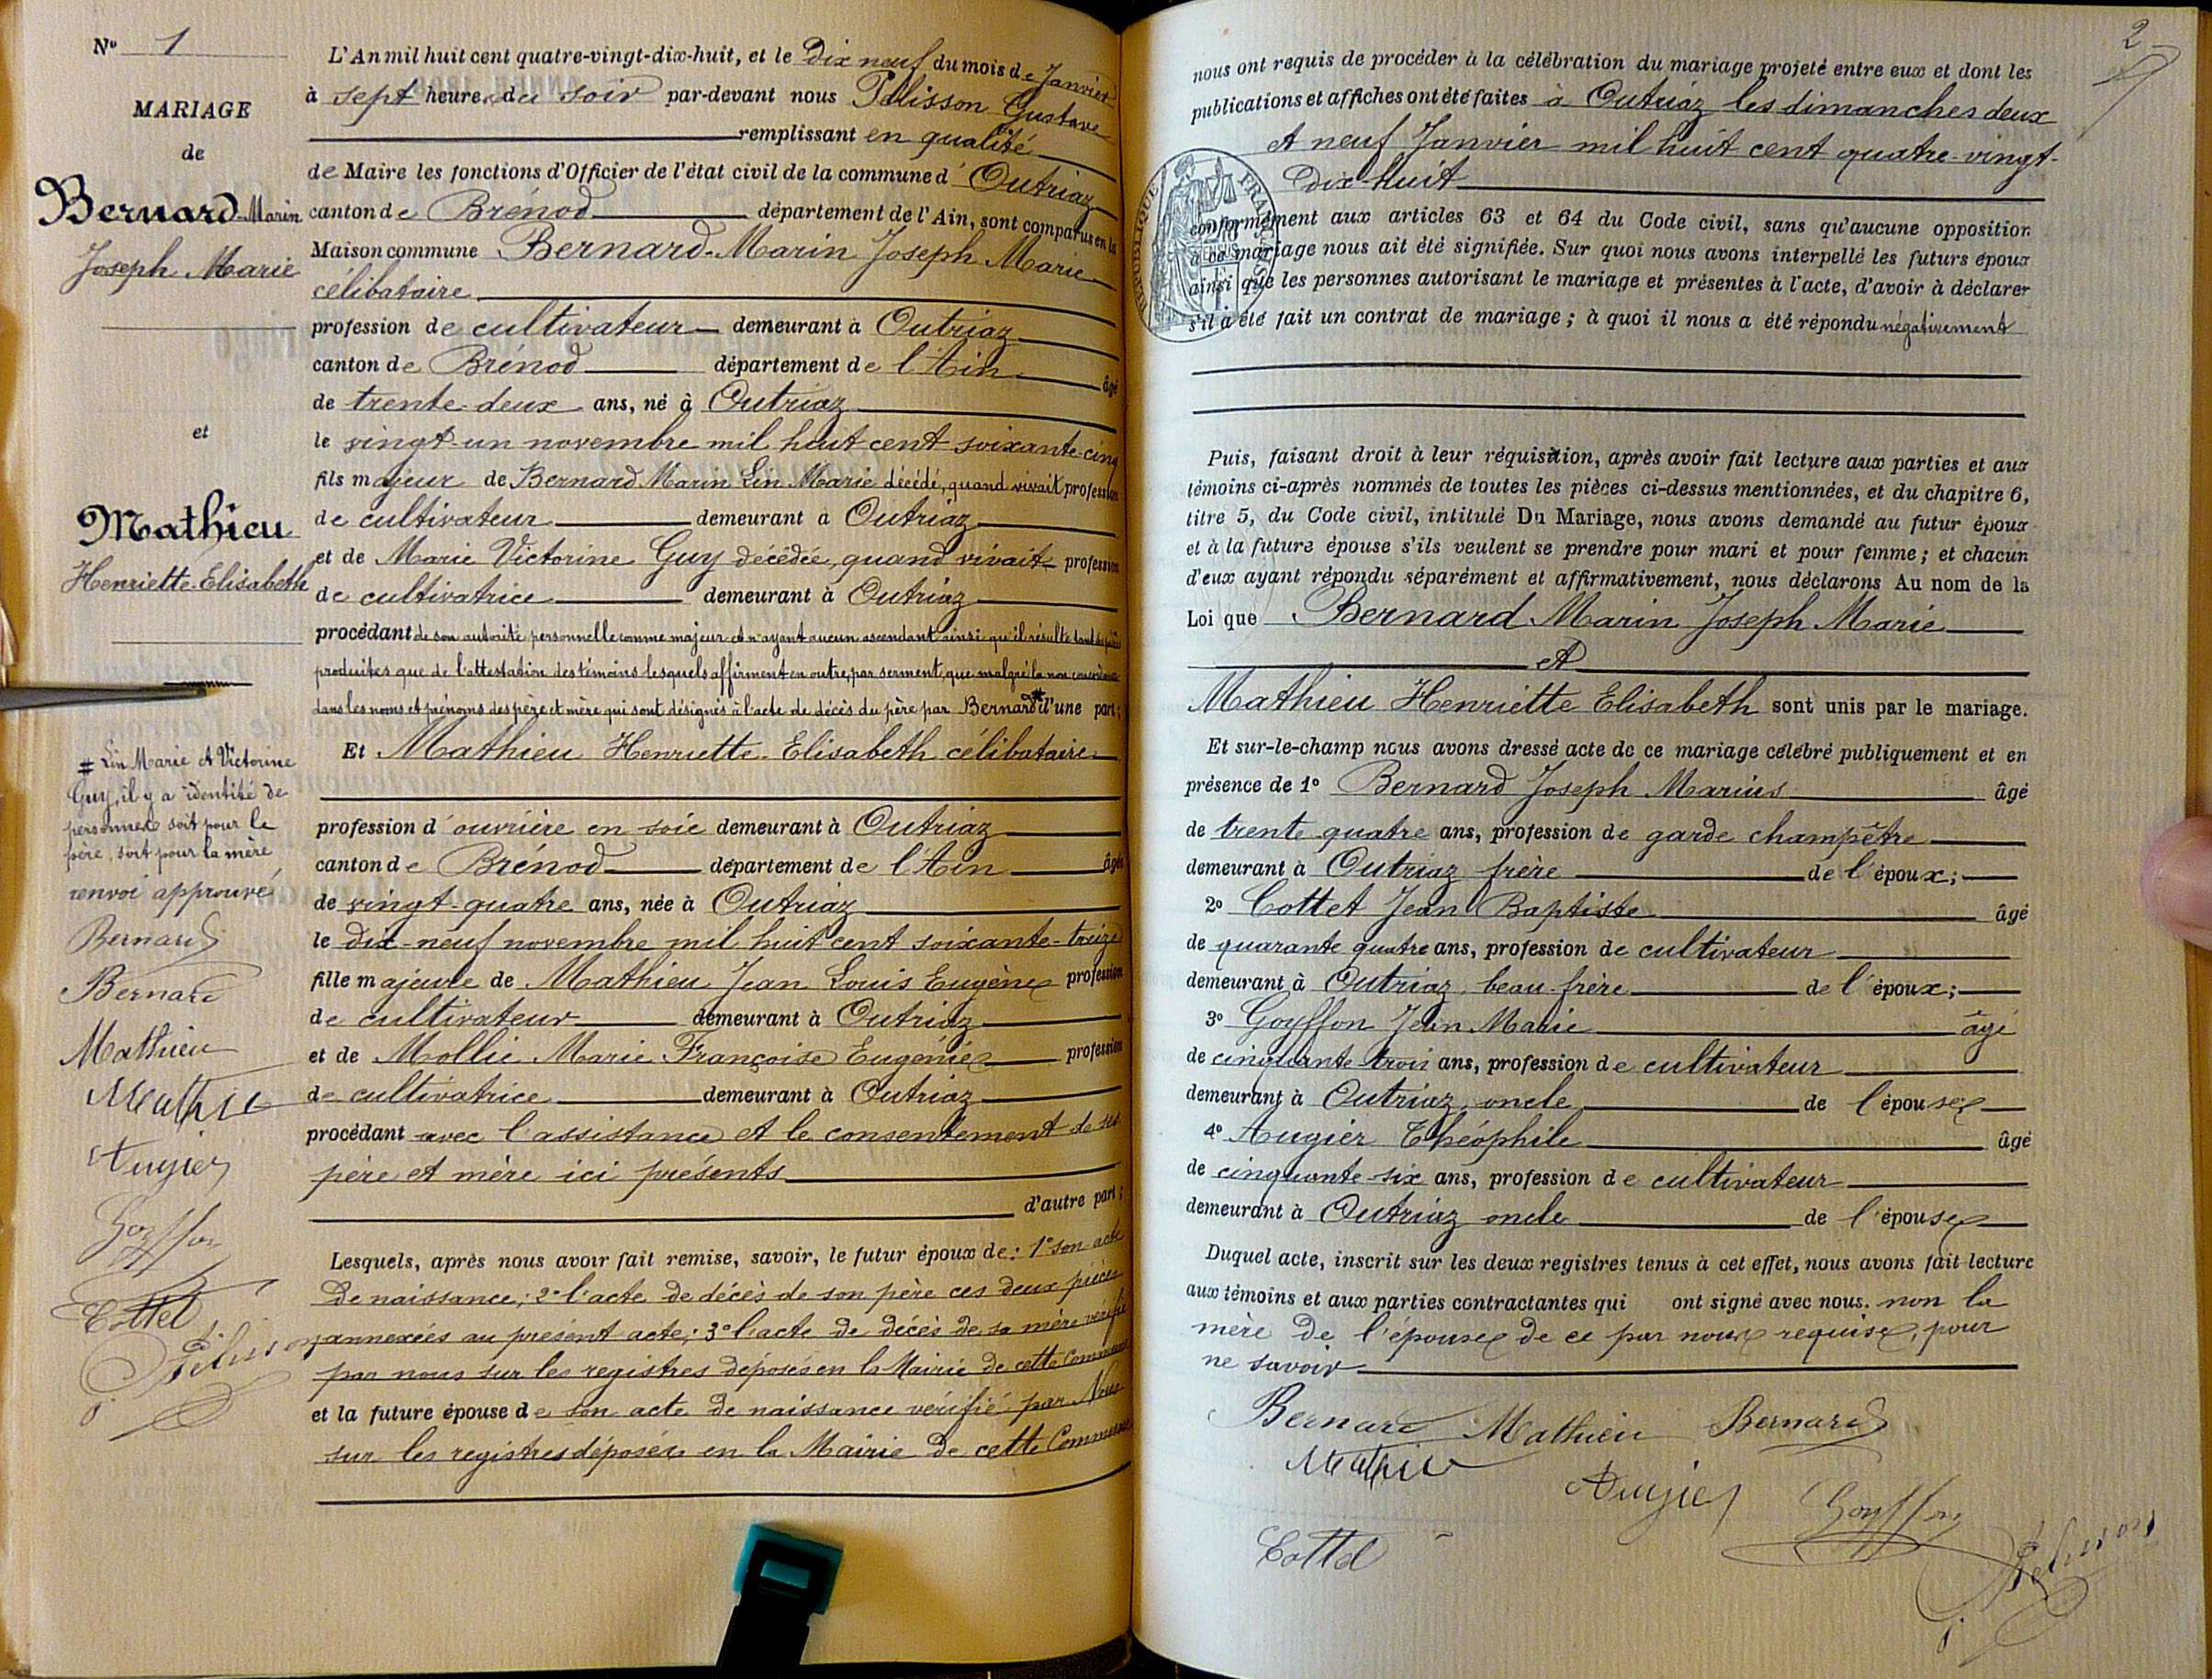 Nº 1
MARIAGE
de
Bernard-Marin
Joseph Marie
et
Mathieu
Henriette-Elisabeth
# Lin Marie et Victorine
Guy, il y a identité de
personnes soit pour le
père, soit pour la mère
renvoi approuvé
Bernard
Bernard
Mathieu
Mathieu
Augier
Goyffon
Cottet
Pélisson
L'An mil huit cent quatre-vingt-dix-huit, et le Dix neuf du mois de Janvier
à sept heures du soir par-devant nous Pélisson Gustave
remplissant en qualité
de Maire les fonctions d'Officier de l'état civil de la commune d' Outriaz
canton de Brénod département de l'Ain, sont comparus en la
Maison commune Bernard-Marin Joseph Marie
célibataire
profession de cultivateur demeurant à Outriaz
canton de Brénod département de l'Ain âgé
de trente-deux ans, né à Outriaz
le vingt-un novembre mil huit cent soixante-cinq
fils majeur de Bernard Marin Lin Marie décédé, quand vivait profession
de cultivateur demeurant à Outriaz
et de Marie Victorine Guy décédée, quand vivait profession
de cultivatrice demeurant à Outriaz
procédant de son autorité personnelle comme majeur et n'ayant aucun ascendant ainsi qu'il résulte tant des pièces
produites que de l'attestation des témoins lesquels affirment en outre, par serment, que malgré la non concordance
dans les noms et prénoms des père et mère qui sont désignés à l'acte de décès du père par Bernard # d'une part;
Et Mathieu Henriette-Elisabeth célibataire
profession d'ouvrière en soie demeurant à Outriaz
canton de Brénod département de l'Ain âgée
de vingt-quatre ans, née à Outriaz
le dix-neuf novembre mil huit cent soixante-treize
fille majeure de Mathieu Jean Louis Eugène profession
de cultivateur demeurant à Outriaz
et de Mollie Marie Françoise Eugénie profession
de cultivatrice demeurant à Outriaz
procédant avec l'assistance et le consentement de ses
père et mère ici présents
d'autre part;
Lesquels, après nous avoir fait remise, savoir, le futur époux de: 1º son acte
de naissance; 2º l'acte de décès de son père ces deux pièces
annexées au présent acte; 3º l'acte de décès de sa mère vérifié
par nous sur les registres déposés en la Mairie de cette Commune
et la future épouse de son acte de naissance vérifié par Nous
sur les registres déposés en la Mairie de cette Commune
2
nous ont requis de procéder à la célébration du mariage projeté entre eux et dont les
publications et affiches ont été faites à Outriaz les dimanches deux
et neuf Janvier mil huit cent quatre-vingt-
Dix-huit
conformément aux articles 63 et 64 du Code civil, sans qu'aucune opposition
à ce mariage nous ait été signifiée. Sur quoi nous avons interpellé les futurs époux
ainsi que les personnes autorisant le mariage et présentes à l'acte, d'avoir à déclarer
s'il a été fait un contrat de mariage; à quoi il nous a été répondu négativement
Puis, faisant droit à leur réquisition, après avoir fait lecture aux parties et aux
témoins ci-après nommés de toutes les pièces ci-dessus mentionnées, et du chapitre 6,
titre 5, du Code civil, intitulé Du Mariage, nous avons demandé au futur époux
et à la future épouse s'ils veulent se prendre pour mari et pour femme; et chacun
d'eux ayant répondu séparément et affirmativement, nous déclarons Au nom de la
Loi que Bernard Marin Joseph Marie
et
Mathieu Henriette Elisabeth sont unis par le mariage.
Et sur-le-champ nous avons dressé acte de ce mariage célébré publiquement et en
présence de 1º Bernard Joseph Marius âgé
de trente-quatre ans, profession de garde champêtre
demeurant à Outriaz frère de l'époux;
2º Cottet Jean Baptiste âgé
de quarante quatre ans, profession de cultivateur
demeurant à Outriaz, beau-frère de l'époux;
3º Goyffon Jean Marie âgé
de cinquante trois ans, profession de cultivateur
demeurant à Outriaz, oncle de l'épouse
4º Augier Théophile âgé
de cinquante-six ans, profession de cultivateur
demeurant à Outriaz oncle de l'épouse
Duquel acte, inscrit sur les deux registres tenus à cet effet, nous avons fait lecture
aux témoins et aux parties contractantes qui ont signé avec nous. non la
mère de l'épouse de ce par nous requise, pour
ne savoir
Bernard Mathieu Bernard
Mathieu
Augier
Goyffon
Cottet
Pélisson